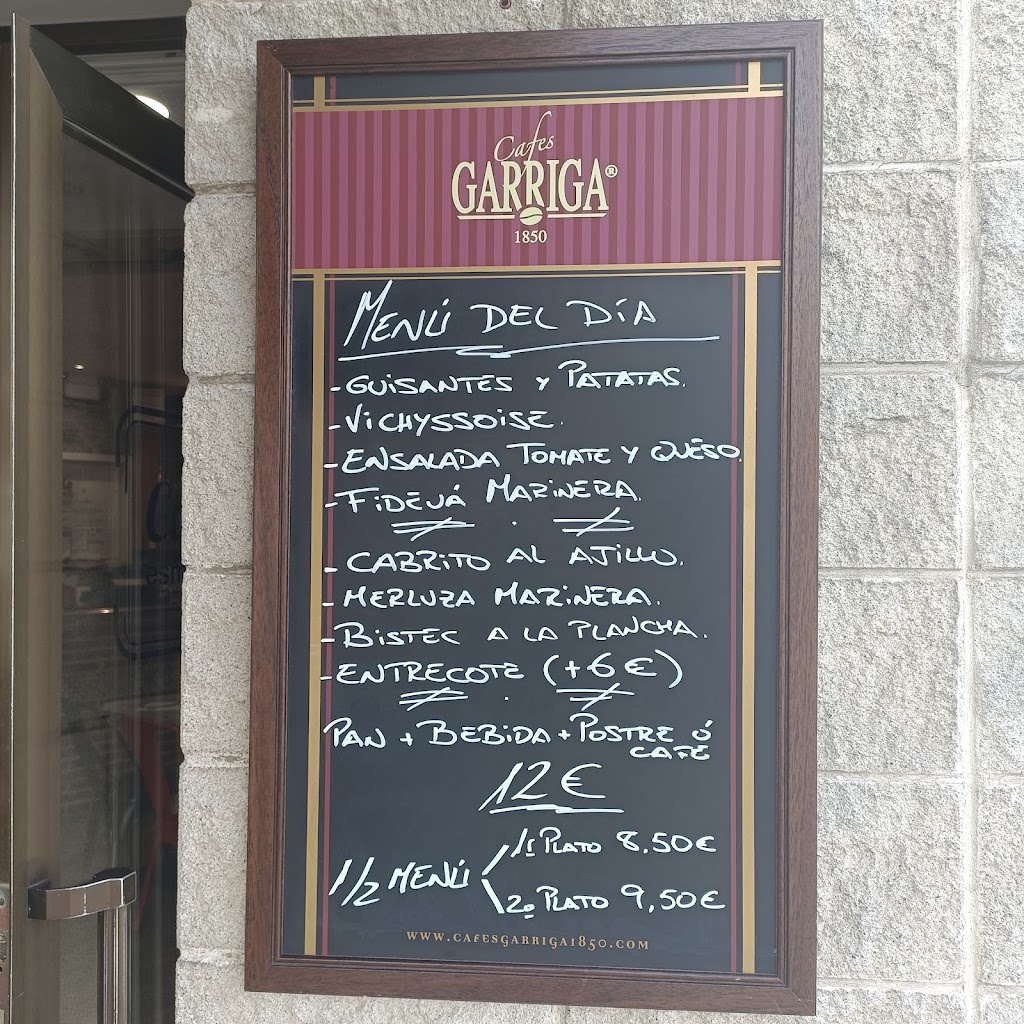 Cafes
GARRIGA®
1850
MENÚ DEL DÍA
-GUISANTES Y PATATAS.
-VICHYSSOISE.
-ENSALADA TOMATE Y QUÉSO.
-FIDEUÁ MARINERA.
-CABRITO AL AJILLO.
-MERLUZA MARINERA.
-BISTEC A LA PLANCHA.
-ENTRECOTE (+6€)
PAN + BEBIDA + POSTRE Ó
CAFÉ
12€
1/2 MENÚ
1º PLATO 8,50€
2º PLATO 9,50€
WWW.CAFESGARRIGA1850.COM